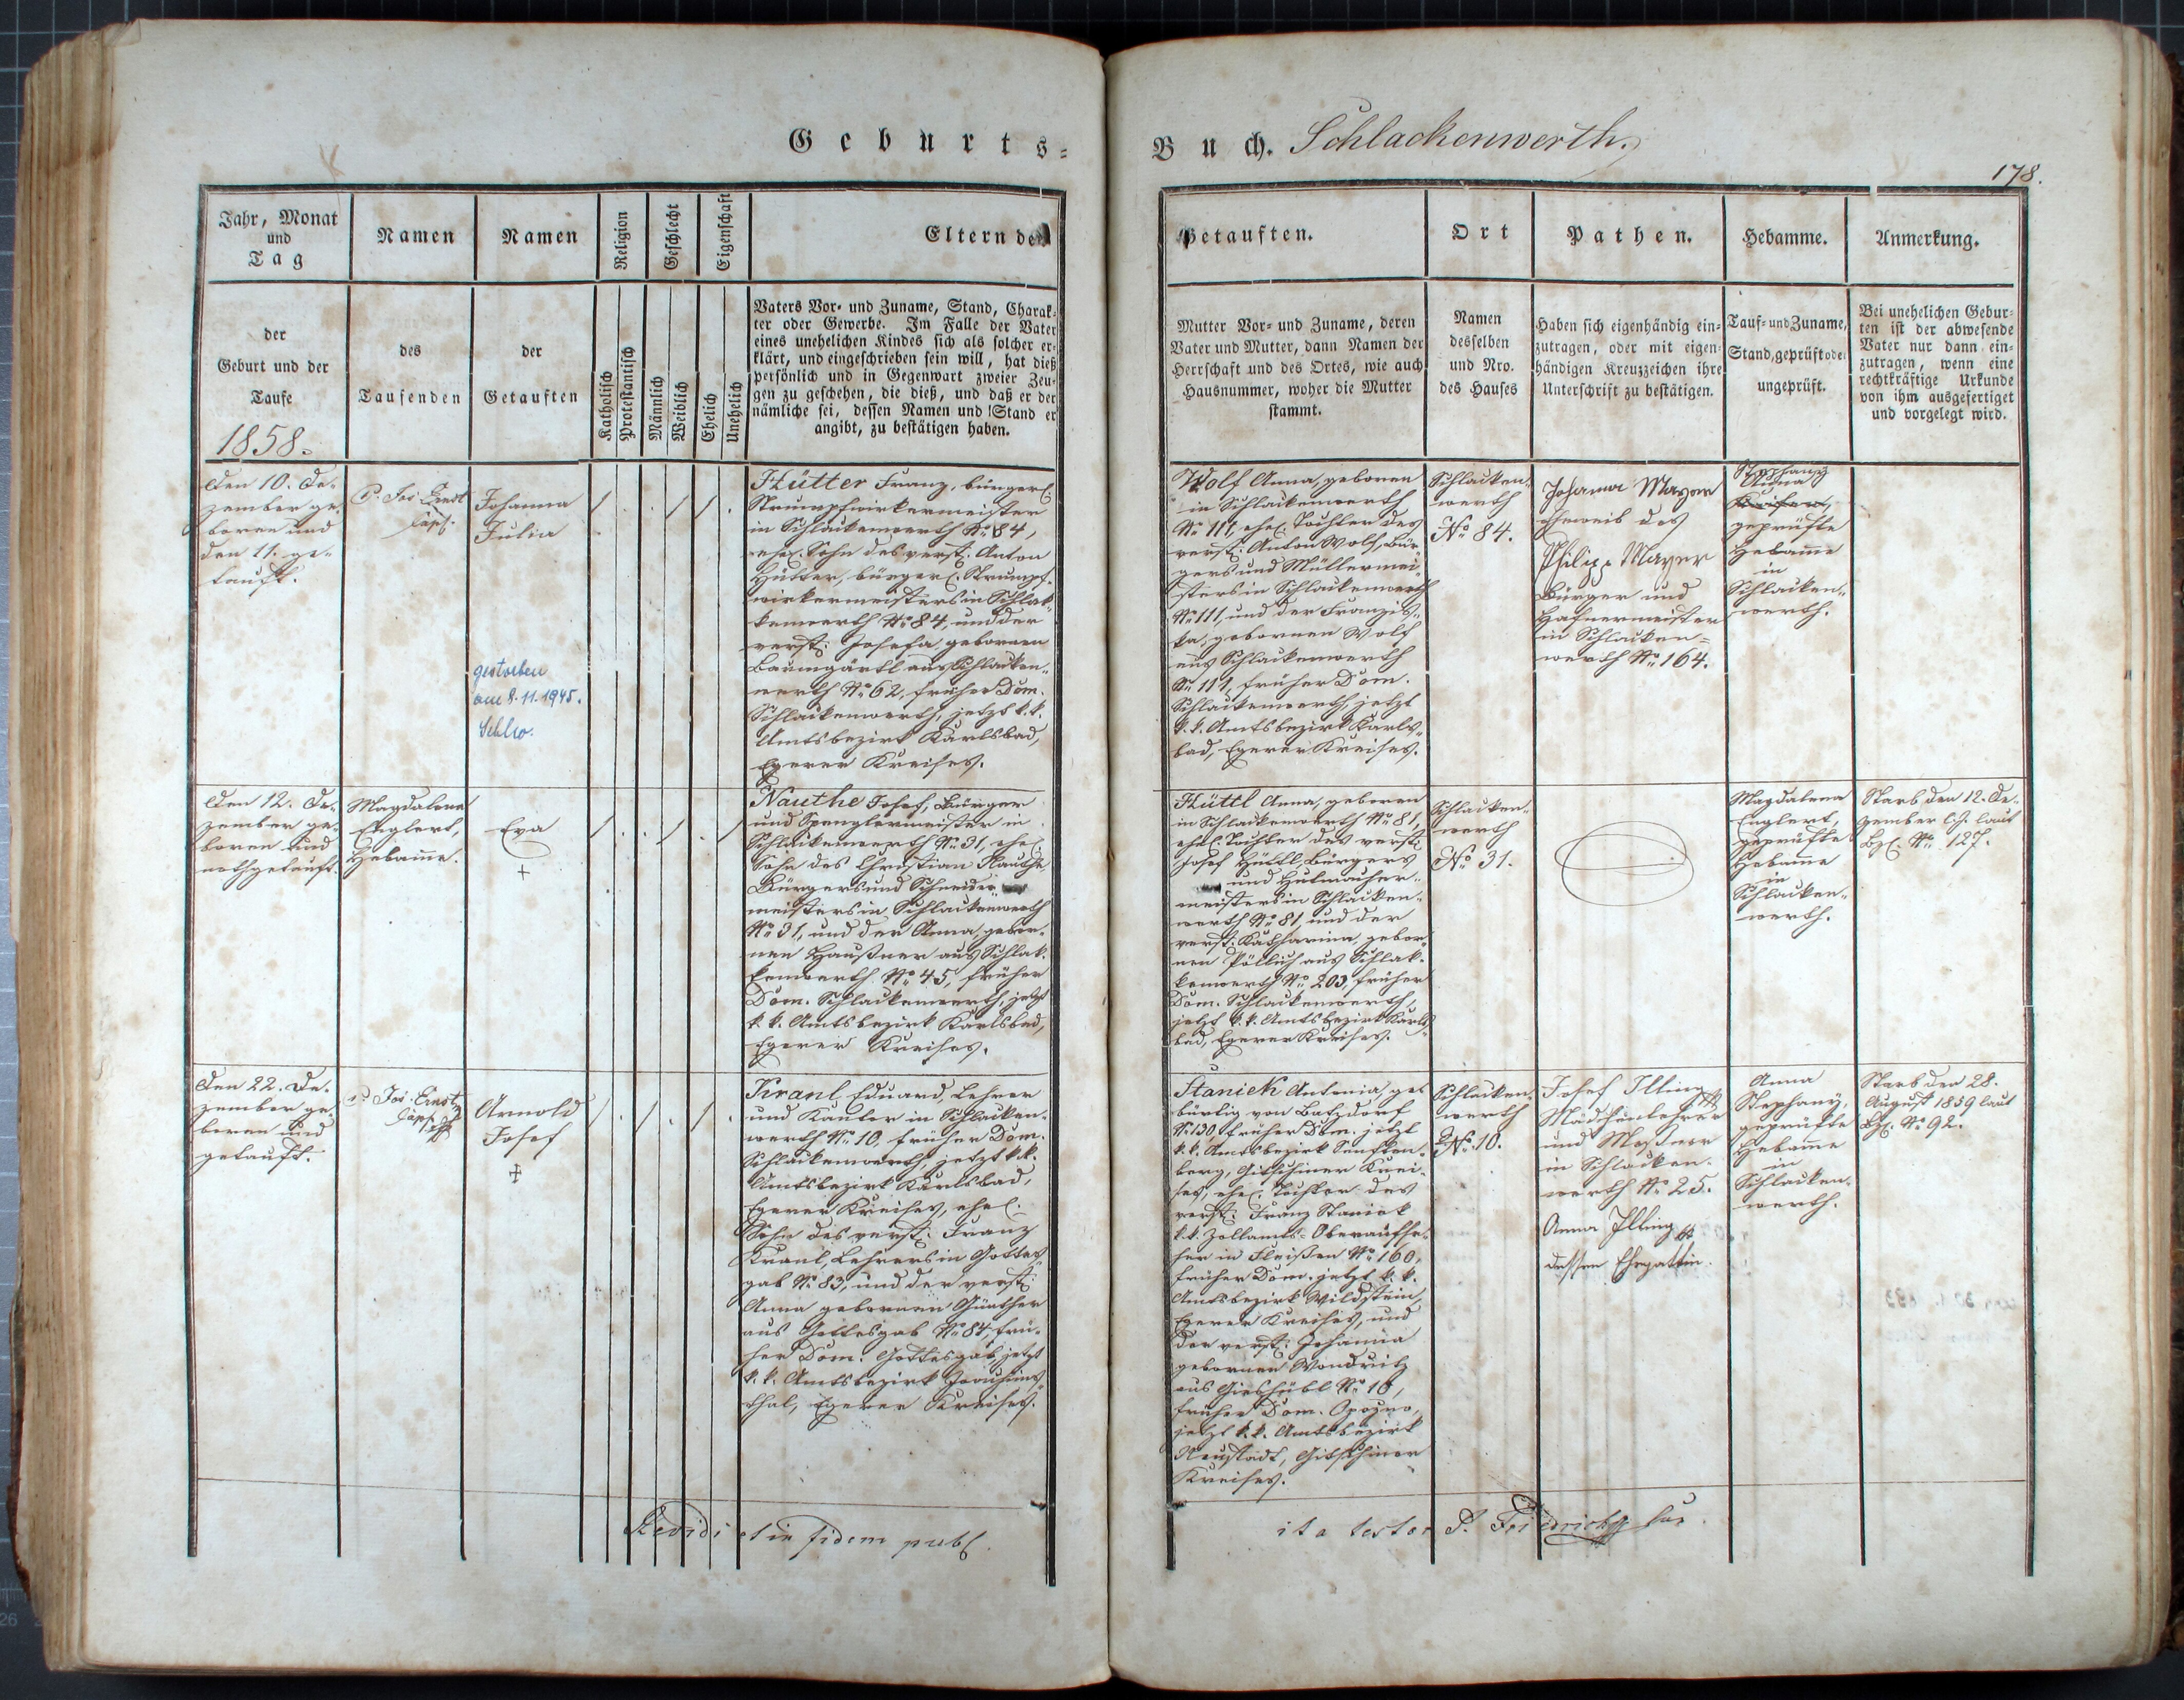 Geburts=
Buch. Schlackenwerth.
178.
Jahr, Monat
und
Tag
Namen
Namen
Religion
Geschlecht
Eigenschaft
Eltern der
der
Geburt und der
Taufe
1858.
des
Taufenden
der
Getauften
Katholisch
Protestantisch
Männlich
Weiblich
Ehelich
Unehelich
Vaters Vor- und Zuname, Stand, Charak-
ter oder Gewerbe. Im Falle der Vater
eines unehelichen Kindes sich als solcher er-
klärt, und eingeschrieben sein will, hat dieß
persönlich und in Gegenwart zweier Zeu-
gen zu geschehen, die dieß, und daß er der
nämliche sei, dessen Namen und Stand er
angibt, zu bestätigen haben.
Getauften.
Ort
Pathen.
Hebamme.
Anmerkung.
Mutter Vor- und Zuname, deren
Vater und Mutter, dann Namen der
Herrschaft und des Ortes, wie auch
Hausnummer, woher die Mutter
stammt.
Namen
desselben
und Nro.
des Hauses
Haben sich eigenhändig ein-
zutragen, oder mit eigen-
händigen Kreuzzeichen ihre
Unterschrift zu bestätigen.
Tauf- und Zuname,
Stand, geprüft oder
ungeprüft.
Bei unehelichen Gebur-
ten ist der abwesende
Vater nur dann ein-
zutragen, wenn eine
rechtkräftige Urkunde
von ihm ausgefertiget
und vorgelegt wird.
Den 10. De-
zember ge-
boren und
den 11. ge-
tauft.
P. Jos. Ernst
Johanna
Julia
gestorben
am 8.11.1945.
Schlw.
Hütter Franz, bürgerl.
Strumpfwirkermeister
in Schlackenwerth No 84,
ehel. Sohn des verst. Anton
Hütter, bürgerl. Strumpf-
wirkermeisters in Schlak-
kenwerth No 84, und der
verst. Josefa gebornen
Baumgärtl aus Schlacken-
werth No 62, früher Dom.
Schlackenwerth, jetzt k. k.
Amtsbezirk Karlsbad,
Egerer Kreises.
Wolf Anna, geboren
in Schlackenwerth
No 111, ehel. Tochter des
verst. Anton Wolf, Bür-
gers und Müllermei-
sters in Schlackenwerth
No 111, und der Franzis-
ka, gebornen Wolf
aus Schlackenwerth
No 111, früher Dom.
Schlackenwerth, jetzt
k. k. Amtsbezirk Karls-
bad, Egerer Kreises.
Schlacken-
werth
No 84.
Johanna Mayer
Eheweib des
Philipp Mayer
Bürger und
Hafnermeister
in Schlacken=
werth No 164.
Stephany
Anna
geprüfte
Hebamme
in
Schlacken-
werth.
Den 12. De-
zember ge-
boren und
nothgetauft.
Magdalena
Englert,
Hebamme.
Eva
+
Nauthe Josef, Bürger
und Spenglermeister in
Schlackenwerth No 31, ehel.
Sohn des Christian Nauthe,
Bürgers und Schneider-
meisters in Schlackenwerth
No 31, und der Anna, gebor-
nen Haußner aus Schlak-
kenwerth No 45, früher
Dom. Schlackenwerth, jetzt
k. k. Amtsbezirk Karlsbad,
Egerer Kreises.
Hüttl Anna, geboren
in Schlackenwerth No 81,
ehel. Tochter des verst.
Josef Hüttl, Bürgers
und Hutmacher-
meisters in Schlacken-
werth No 81, und der
verst. Katharina, gebor-
nen aus Schlak-
kenwerth No 203, früher
Dom. Schlackenwerth,
jetzt k. k. Amtsbezirk Karls-
bad, Egerer Kreises.
Schlacken-
werth
No 31.
Magdalena
Englert,
geprüfte
Hebamme
in
Schlacken-
werth.
Starb den 12. De-
zember l. J. laut
No 127.
Den 22. De-
zember ge-
boren und
getauft.
P. Jos. Ernst
Arnold
Josef
+
Kraul Eduard, Lehrer
und Kantor in Schlacken-
werth No 10, früher Dom.
Schlackenwerth, jetzt k. k.
Amtsbezirk Karlsbad,
Egerer Kreises, ehel.
Sohn des verst. Franz
Kraul, Lehrers in Gottes-
gab No 83, und der verst.
Anna gebornen Günther
aus Gottesgab No 84, frü-
her Dom. Gottesgab, jetzt
k. k. Amtsbezirk Joachims-
thal, Egerer Kreises.
Staniek Antonia, ge-
bürtig von Batzdorf
No 130, früher Dom. jetzt
k. k. Amtsbezirk Senften-
berg, Gitschiner Krei-
ses, ehel. Tochter des
verst. Franz Staniek
k. k. Zollamts-Oberaufse-
her in Fleißen No 160,
früher Dom. jetzt k. k.
Amtsbezirk Wildstein,
Egerer Kreises, und
der verst. Johanna
gebornen
aus Gießhübl No 10,
früher Dom. Opozno,
jetzt k. k. Amtsbezirk
Neustadt, Gitschiner
Kreises.
Schlacken-
werth
No 10.
Josef Illing
Mädchenlehrer
und Meßner
in Schlacken-
werth No 25.
Anna Illing
dessen Ehegattin.
Anna
Stephany,
geprüfte
Hebamme
in
Schlacken-
werth.
Starb den 28.
August 1859 laut
No 92.
Revidi et in fidem publ.
ita testor P. Friedrich